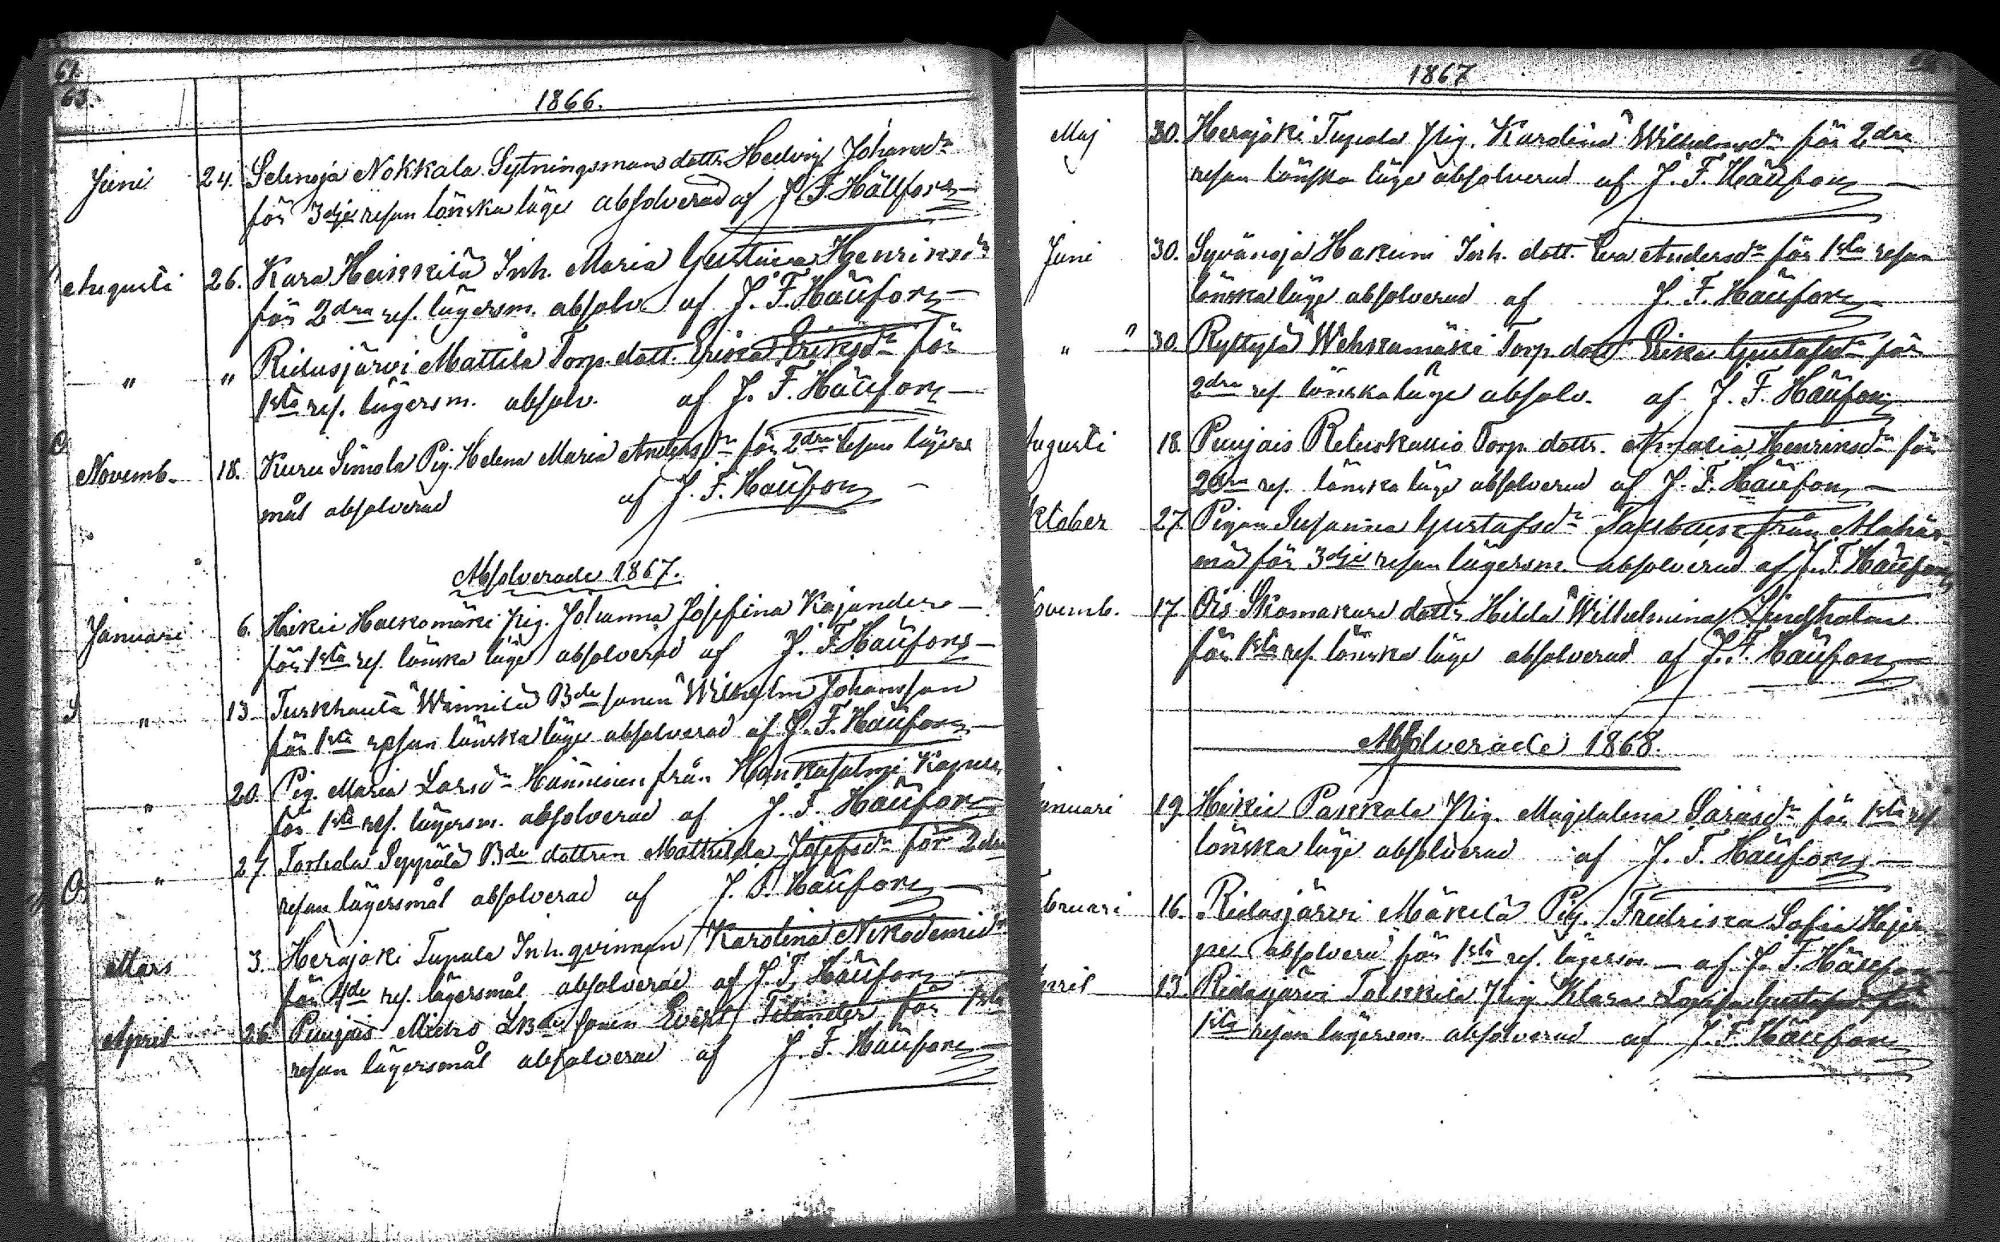 61.
63.
1866.
Juni 24. Selänoja Nokkala Sytningsmans dottr. Hedvig Johansdr
för 3dje resan lönskaläge absolverad af J. F. Hällfors
Augusti 26. Kara Heikkilä Inh. Maria Gustava Henriksdr
för 2dra res. lägersm. absolv. af J. F. Hällfors
" " Ridasjärvi Mattila Torp. dott. Erika Eriksdr för
1sta res. lägersm. absolv. af J. F. Hällfors
Novemb. 18. Kuru Simola Pig. Helena Maria Andersdr för 2dra resan lägers
mål absolverad af J. F. Hällfors
Absolverade 1867.
Januari 6. Hikiä Pig. Johanna Josefina Kajander
för 1sta res. lönska läge absolverad af J. F. Hällfors
" 13. Turkhauta Wännilä Bde sonen Wilhelm Johansson
för 1sta resan lönska läge absolverad af J. F. Hällfors
" 20. Pig. Maria Larsdr Hänninen från Hankasalmi
för 1sta res. lägersm. absolverad af J. F. Hällfors
" 27. Torhola Seppälä Bde dottren Mathilda Josefsdr för 2dra
resan lägersmål absolverad af J. F. Hällfors
Mars 3. Herajoki Tupala Inh. qvinnan Karolina Nikodemidr
för res. lägersmål absolverad af J. F. Hällfors
April 26. Punjais LBde sonen Evert Felander för 1sta
resan lägersmål absolverad af J. F. Hällfors
1867
Maj 30. Herajoki Tupala Pig. Karolina Wilhelmsdr för 2dra
resan lönska läge absolverad af J. F. Hällfors
Juni 30. Syvänoja Hakuni Inh. dott. Eva Andersdr för 1sta resan
lönska läge absolverad af J. F. Hällfors
" " 30. Ryttylä Wehkamäki Torp. dott Erika Gustafsdr för
2dra res. lönska läge absolv. af J. F. Hällfors
ugusti 18. Punjais Retuskallio Torp. dottr. Amalia Henriksdr för
2dra res. lönska läge absolverad af J. F. Hällfors
ktober 27. Pigan Susanna Gustafsdr från
för 3dje resan lägersm. absolverad af J. F. Hällfors
ovemb. 17. Ois Skomakare dottr Hilda Wilhelmina Lindholm
för 1sta res. lönska läge absolverad af J. F. Hällfors
Absolverade 1868.
anuari 19. Hikiä Pakkala Pig. Magdalena för 1sta res
lönska läge absolverad af J. F. Hällfors
bruari 16. Ridasjärvi Mäkelä Pig. Fredrika Sofia Hejer
absolverad för 1sta res. lägersm. af J. F. Hällfors
pril 13. Ridasjärvi Tolkkila Pig. Klara Gustafsdr för
1sta resan lägersm. absolverad af J. F. Hällfors